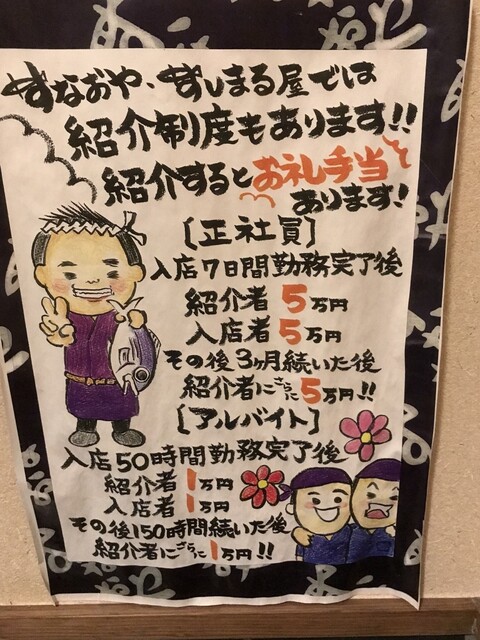 すなおや、すしまる屋では
紹介制度もあります!!
紹介するとお礼手当
あります!
[正社員]
入店7日間勤務完了後
紹介者 5万円
入店者 5万円
その後3ヶ月続いた後
紹介者にさらに5万円!!
[アルバイト]
入店50時間勤務完了後
紹介者 1万円
入店者 1万円
その後150時間続いた後
紹介者にさらに1万円!!